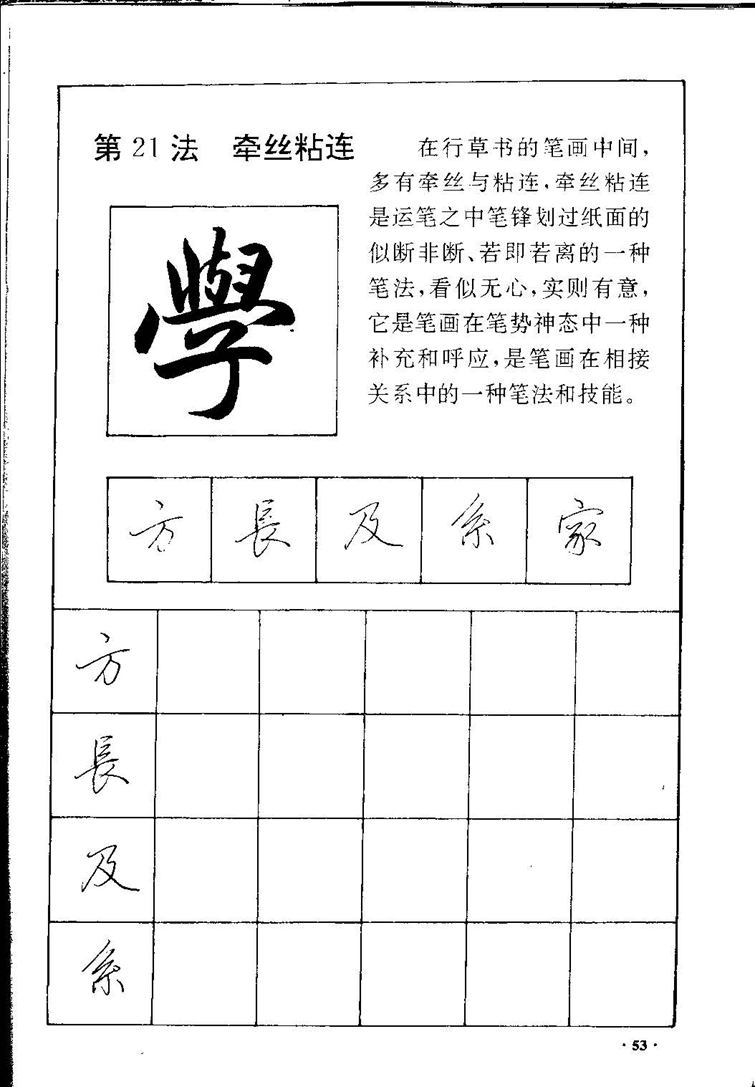 第21法 牵丝粘连
在行草书的笔画中间，
多有牵丝与粘连，牵丝粘连
是运笔之中笔锋划过纸面的
似断非断、若即若离的一种
笔法，看似无心，实则有意，
它是笔画在笔势神态中一种
补充和呼应，是笔画在相接
关系中的一种笔法和技能。
學
方 長 及 系 家
方
長
及
系
·53·